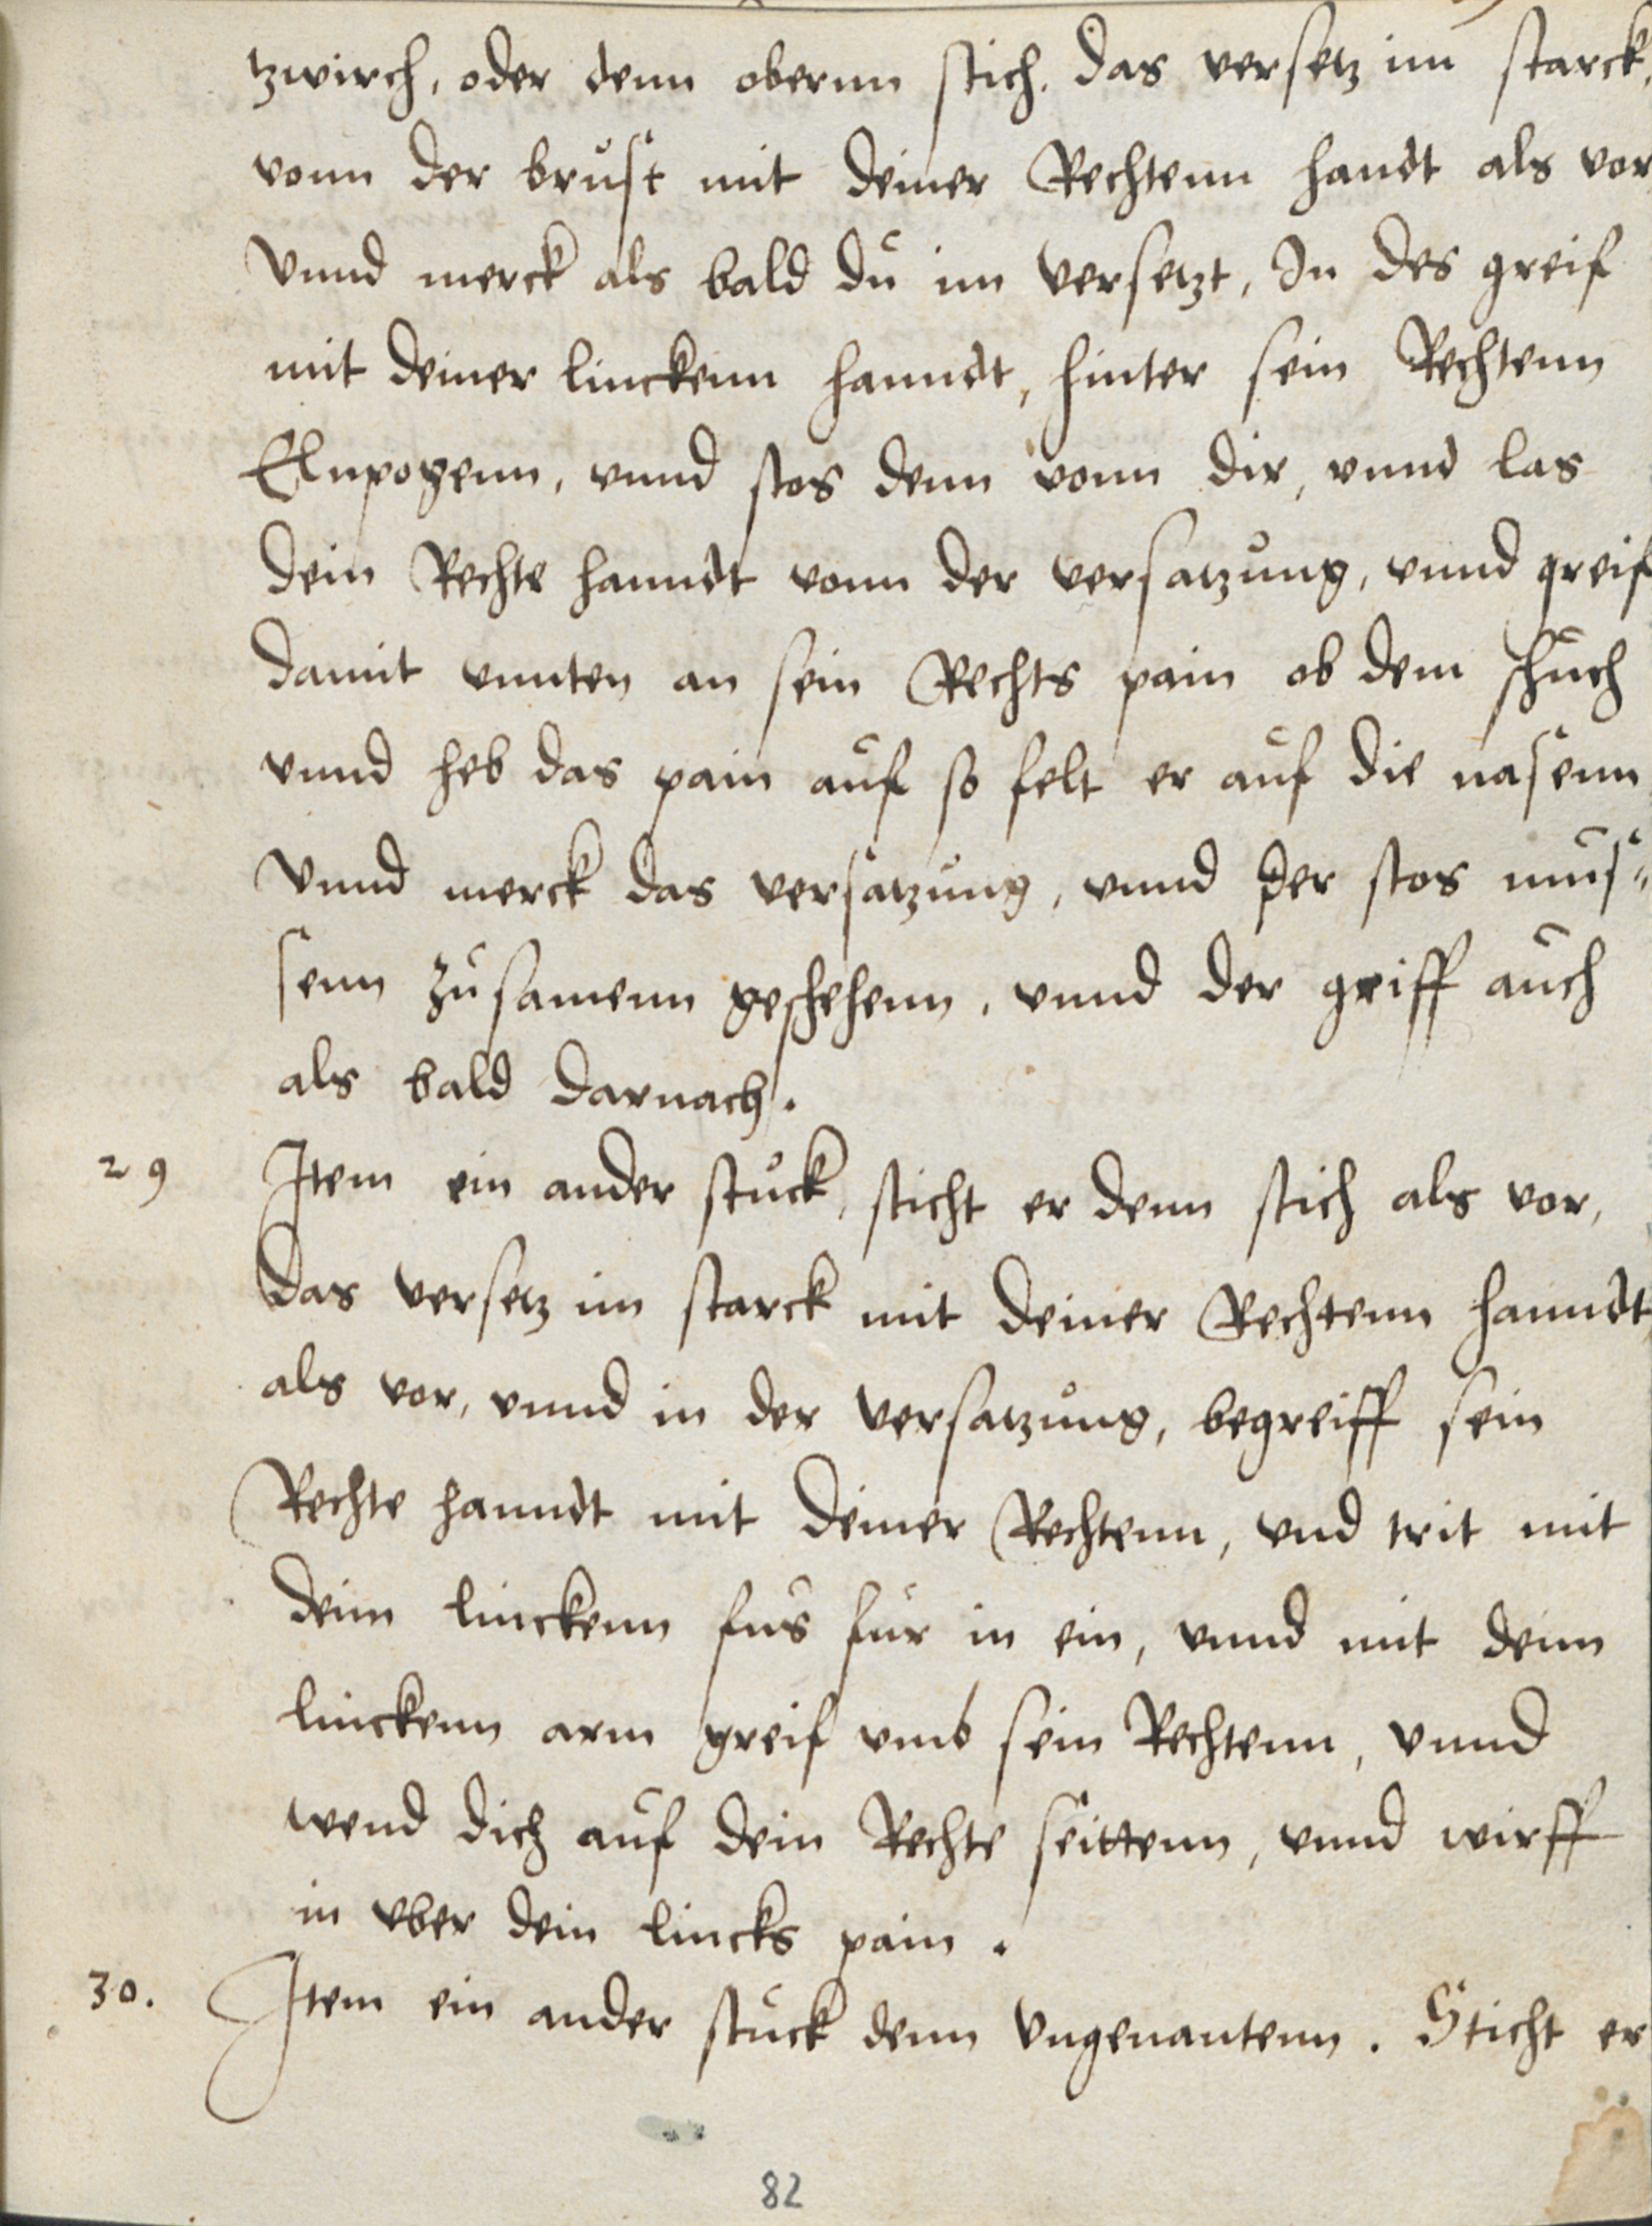 tzwirch, oder denn obernn stich. das versetz im starck,
vonn der brust mit deiner Rechtenn handt als vor
Vnnd merck als bald du im versetzt, In des greif
mit deiner linckenn hanndt, hinter sein Rechtenn
Elnpogenn, vnnd stos denn vonn dir, vnnd las
dein Rechte hanndt vonn der versatzung, vnnd greif
damit vnnten an sein Rechts pain ob dem schuch
vnnd heb das pain auf so felt er auf die nasenn
Vnnd merck das versatzung, vnnd der stos mus„
senn zusamenn geschehenn, vnnd der griff auch
als bald darnach.
29 Item ein ander stuck, sticht er denn stich als vor,
das versetz im starck mit deiner Rechtenn hanndt
als vor, vnnd in der versatzung, begreiff sein
Rechte hanndt mit deiner Rechtenn, vnd trit mit
deim linckenn fus fur in ein, vnnd mit dem
linckenn arm greif vmb sein Rechtenn, vnnd
wend dich auf dein Rechte seittenn, vnnd wirff
in vber dein lincks pain.
30. Item ein ander stuck denn Vngenantenn. Sticht er
82